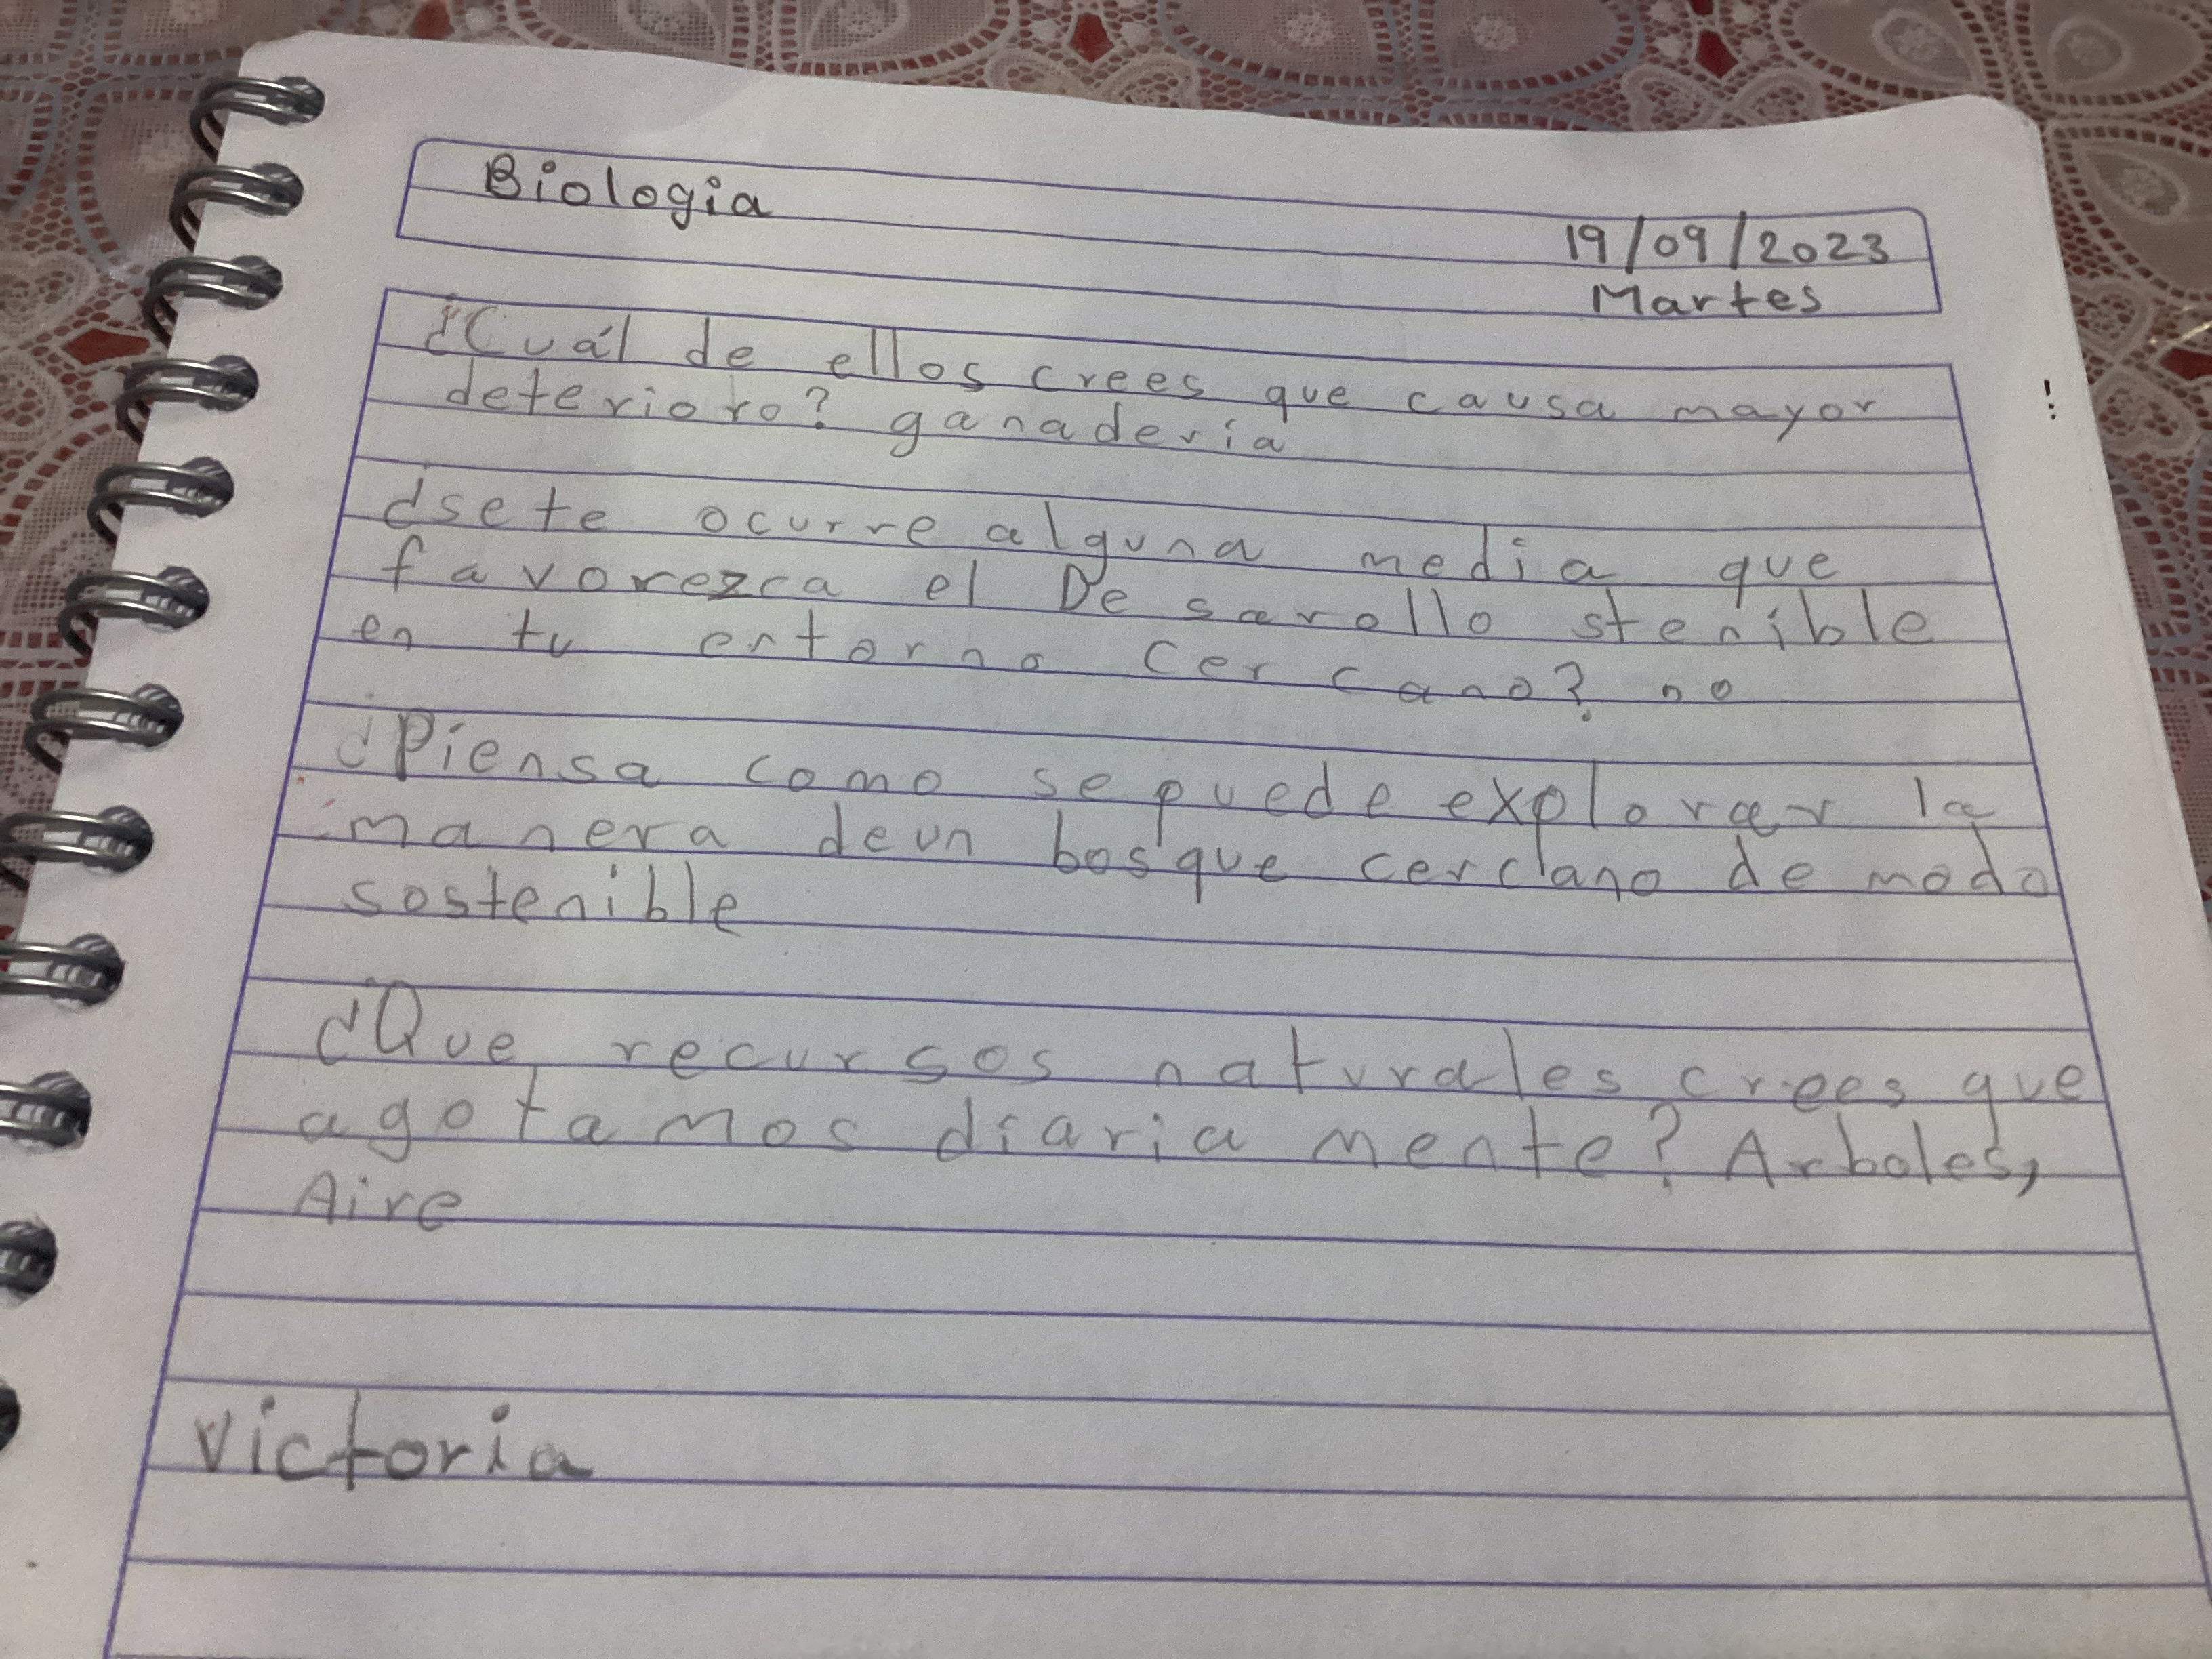 Biologia
19/09/2023
Martes
¿Cuál de ellos crees que causa mayor
deterioro? ganaderia
¿sete ocurre alguna media que
favorezca el De sarollo stenible
en tu entorno cercano? no
¿Piensa como se puede explorar la
manera deun bosque cerclano de modo
sostenible
¿Que recursos naturales crees que
agotamos diaria mente? Arboles,
Aire
victoria